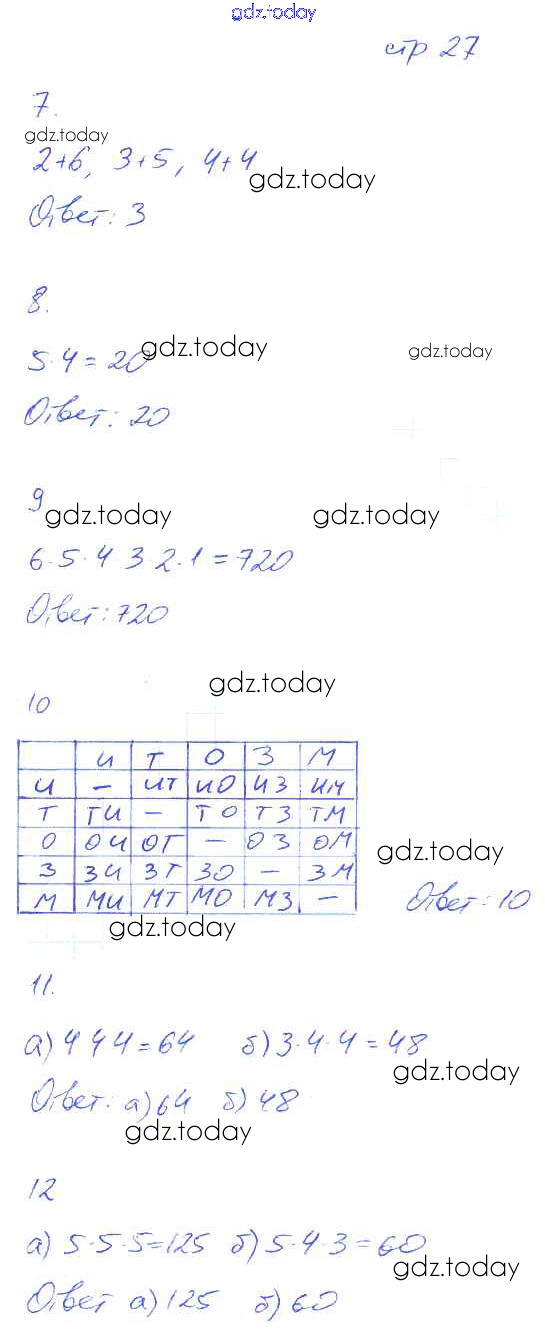 gdz.today
стр 27
7.
gdz.today
2+6, 3+5, 4+4
gdz.today
Ответ: 3
8.
5·4=20
gdz.today
gdz.today
Ответ: 20
9
gdz.today gdz.today
6·5·4 3 2·1=720
Ответ: 720
gdz.today
10
И Т О З М
И – ИТ ИО ИЗ ИМ
Т ТИ – ТО ТЗ ТМ
О ОИ ОТ – ОЗ ОМ
З ЗИ ЗТ ЗО – ЗМ
М МИ МТ МО МЗ –
gdz.today
Ответ: 10
gdz.today
11.
а) 4 4 4 = 64 б) 3·4·4 = 48
gdz.today
Ответ: а) 64 б) 48
gdz.today
12
а) 5·5·5=125 б) 5·4·3=60
gdz.today
Ответ а) 125 б) 60